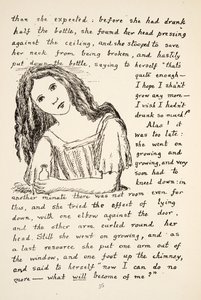 than she expected: before she had drunk
half the bottle, she found her head pressing
against the ceiling, and she stooped to save
her neck from being broken, and hastily
put down the bottle, saying to herself "that's
quite enough—
I hope I shan't
grow any more—
I wish I hadn't
drunk so much!"
Alas! it
was too late:
she went on
growing and
growing, and very
soon had to
kneel down: in
another minute there was not room even for
this, and she tried the effect of lying
down, with one elbow against the door,
and the other arm curled round her
head. Still she went on growing, and as
a last resource she put one arm out of
the window, and one foot up the chimney,
and said to herself "now I can do no
more—what will become of me?"